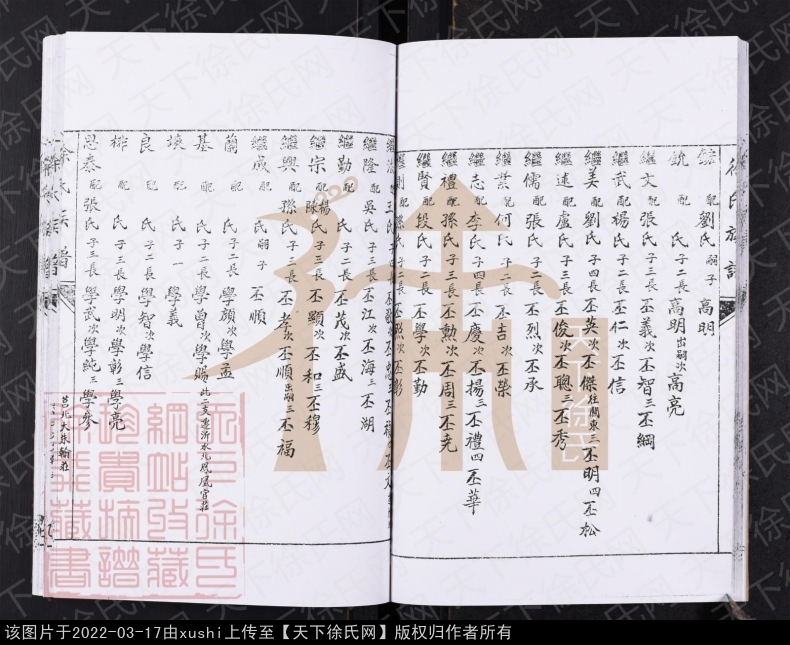 徐氏族譜
鐩 配 劉氏 嗣子 高明
鈗 配 氏 子二 長 高明 出嗣 次 高亮
繼文 配 張氏 子三 長 丕義 次 丕智 三 丕綱
繼武 配 楊氏 子二 長 丕仁 次 丕信
繼美 配 劉氏 子四 長 丕英 次 丕傑 住關東 三 丕明 四 丕松
繼述 配 盧氏 子三 長 丕俊 次 丕聰 三 丕秀
繼儒 配 張氏 子二 長 丕烈 次 丕承
繼業 配 何氏 子二 長 丕吉 次 丕榮
繼志 配 李氏 子四 長 丕慶 次 丕揚 三 丕禮 四 丕華
繼禮 配 孫氏 子三 長 丕勲 次 丕周 三 丕光
繼賢 配 段氏 子二 長 丕學 次 丕勤
繼 配 孫氏 子二 長 丕烈 次 丕彰
繼 配 王氏 子
繼隆 配 吳氏 子三 長 丕江 次 丕海 三 丕湖
繼勤 配 氏 子二 長 丕茂 次 丕盛
繼宗 配 楊 陳 氏 子三 長 丕顯 次 丕和 三 丕穆
繼興 配 孫氏 子三 長 丕孝 次 丕順 出嗣 三 丕福
繼成 配 氏 嗣子 丕順
蘭 配 氏 子二 長 學顏 次 學孟
基 配 氏 子二 長 學曾 次 學賜 此二支遷沂水北鳳凰官莊
埉 配 氏 子一 學義
良 配 氏 子二 長 學智 次 學信
榔 配 氏 子三 長 學明 次 學彰 三 學亮
恩泰 配 張氏 子三 長 學武 次 學純 三 學參
徐氏族譜
莒北大朱翰莊
天下徐氏
天下徐氏网
该图片于2022-03-17由xushi上传至【天下徐氏网】版权归作者所有